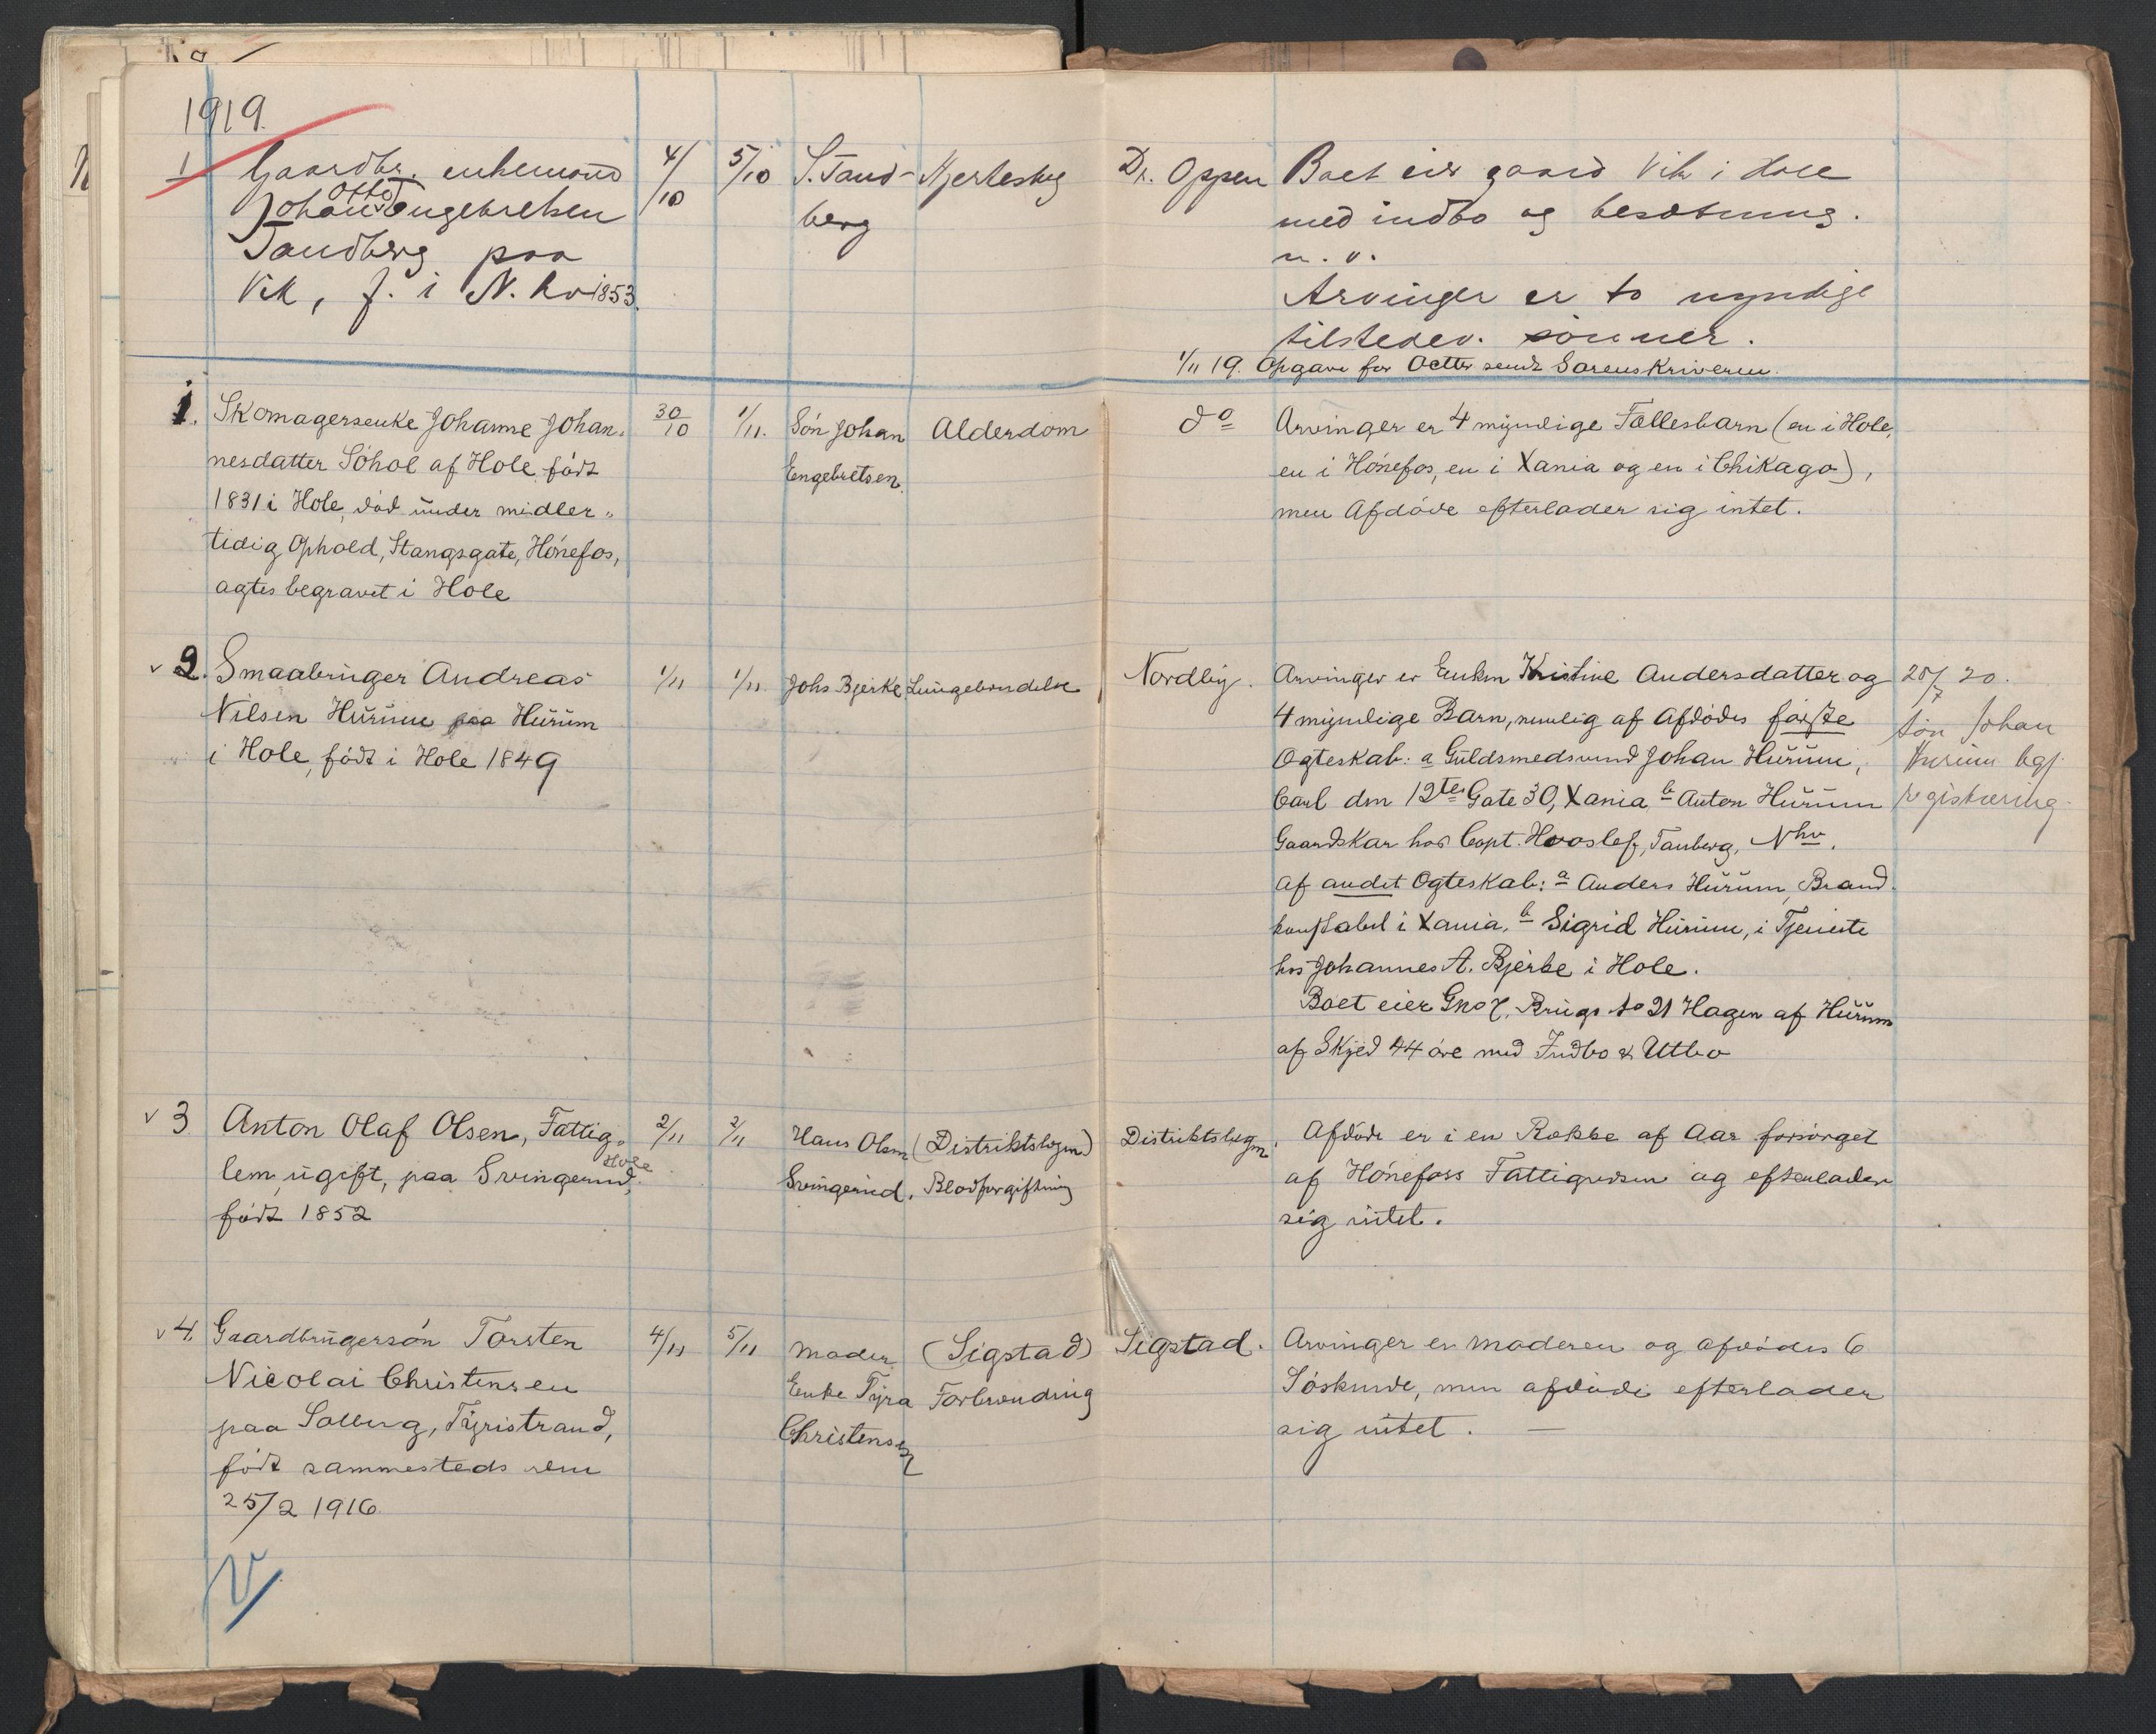 1919.
1 Gaardbr. enkemand
Johan Otto Engebretsen
Tandberg paa
Vik, f. i N. hv 1853.
4/10
5/10
S. Tand-
berg
Hjerteslag
Dr. Oppen
Boet eier gaard Vik i Hole
med indbo og besætning.
m. v.
Arvinger er to myndige
tilstedev. sønner.
1/11 19. Opgave for Octbr sendt Sorenskriveren.
1. Skomagerenke Johanne Johan-
nesdatter Sóhol af Hole født
1831 i Hole, død under midler-
tidig Ophold, Stangsgate, Hónefos,
agtes begravet i Hole
30/10
1/11.
Són Johan
Engebretsen.
Alderdom
do
Arvinger er 4 myndige Fællesbarn (en i Hole,
en i Hónefos, en i Xania og en i Chikago),
men Afdóde efterlader sig intet.
v 2. Smaabruger Andreas
Nilsen Hurum paa Hurum
i Hole, fódt i Hole 1849
1/11
1/11.
Johs Bjerke
Lungebendelse
Nordby.
Arvinger er Enken Kristine Andersdatter og
4 myndige Barn, nemlig af Afdódes fórste
Ogteskab: a Guldsmedsvend Johan Hurum,
Carl den 12tes Gate 30, Xania b Anton Hurum
Gaardskar hos Capt. Hvoslef, Tanberg, Nhv.
af andet Ogteskab: a Anders Hurum, Brand-
konstabel i Xania, b Sigrid Hurum, i Tjeneste
hos Johannes A. Bjerke i Hole.
Boet eier Gno 7, Brugs no 21 Hagen af Hurum
af Skyld 44 óre med Indbo & Utbo
20.
Sön Johan
Hurum bgj.
registrering.
v 3 Anton Olaf Olsen, Fattig-
lem, ugift, paa Svingerud, Hole
fódt 1852
2/11
2/11
Hans Olsen
Svingerud.
(Distriktslægen)
Blodforgiftning
Distriktslægen.
Afdóde er i en Række af Aar forsórget
af Hónefoss Fattigvæsen og efterlader
sig intet.
v 4. Gaardbrugersón Torsten
Nicolai Christensen
paa Solberg, Tyristrand,
fódt sammesteds den
25/2 1916.
4/11
5/11
Moder
Enke Tyra
Christensen
(Sigstad)
Forbrænding
Sigstad.
Arvinger er Moderen og afdódes 6
Sóskende, men afdóde efterlader
sig intet. —
V